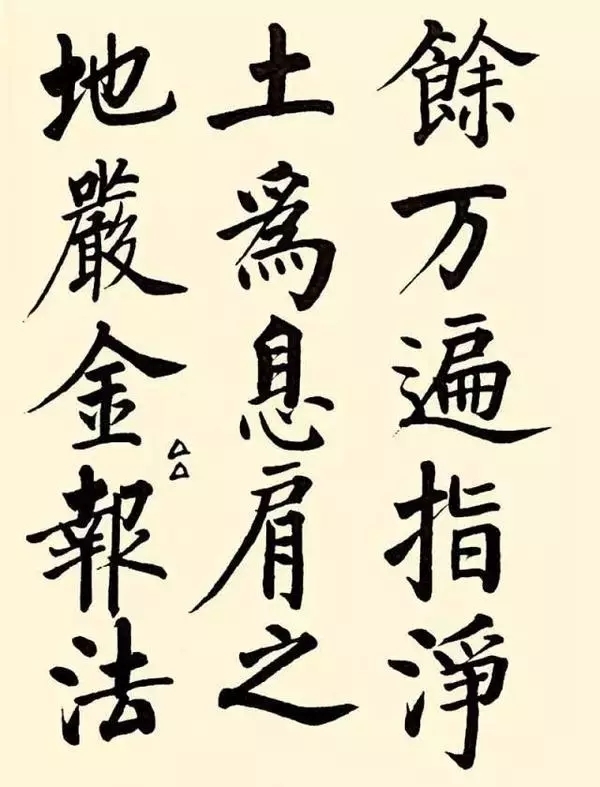 餘万遍指淨
土爲息肩之
地嚴金報法